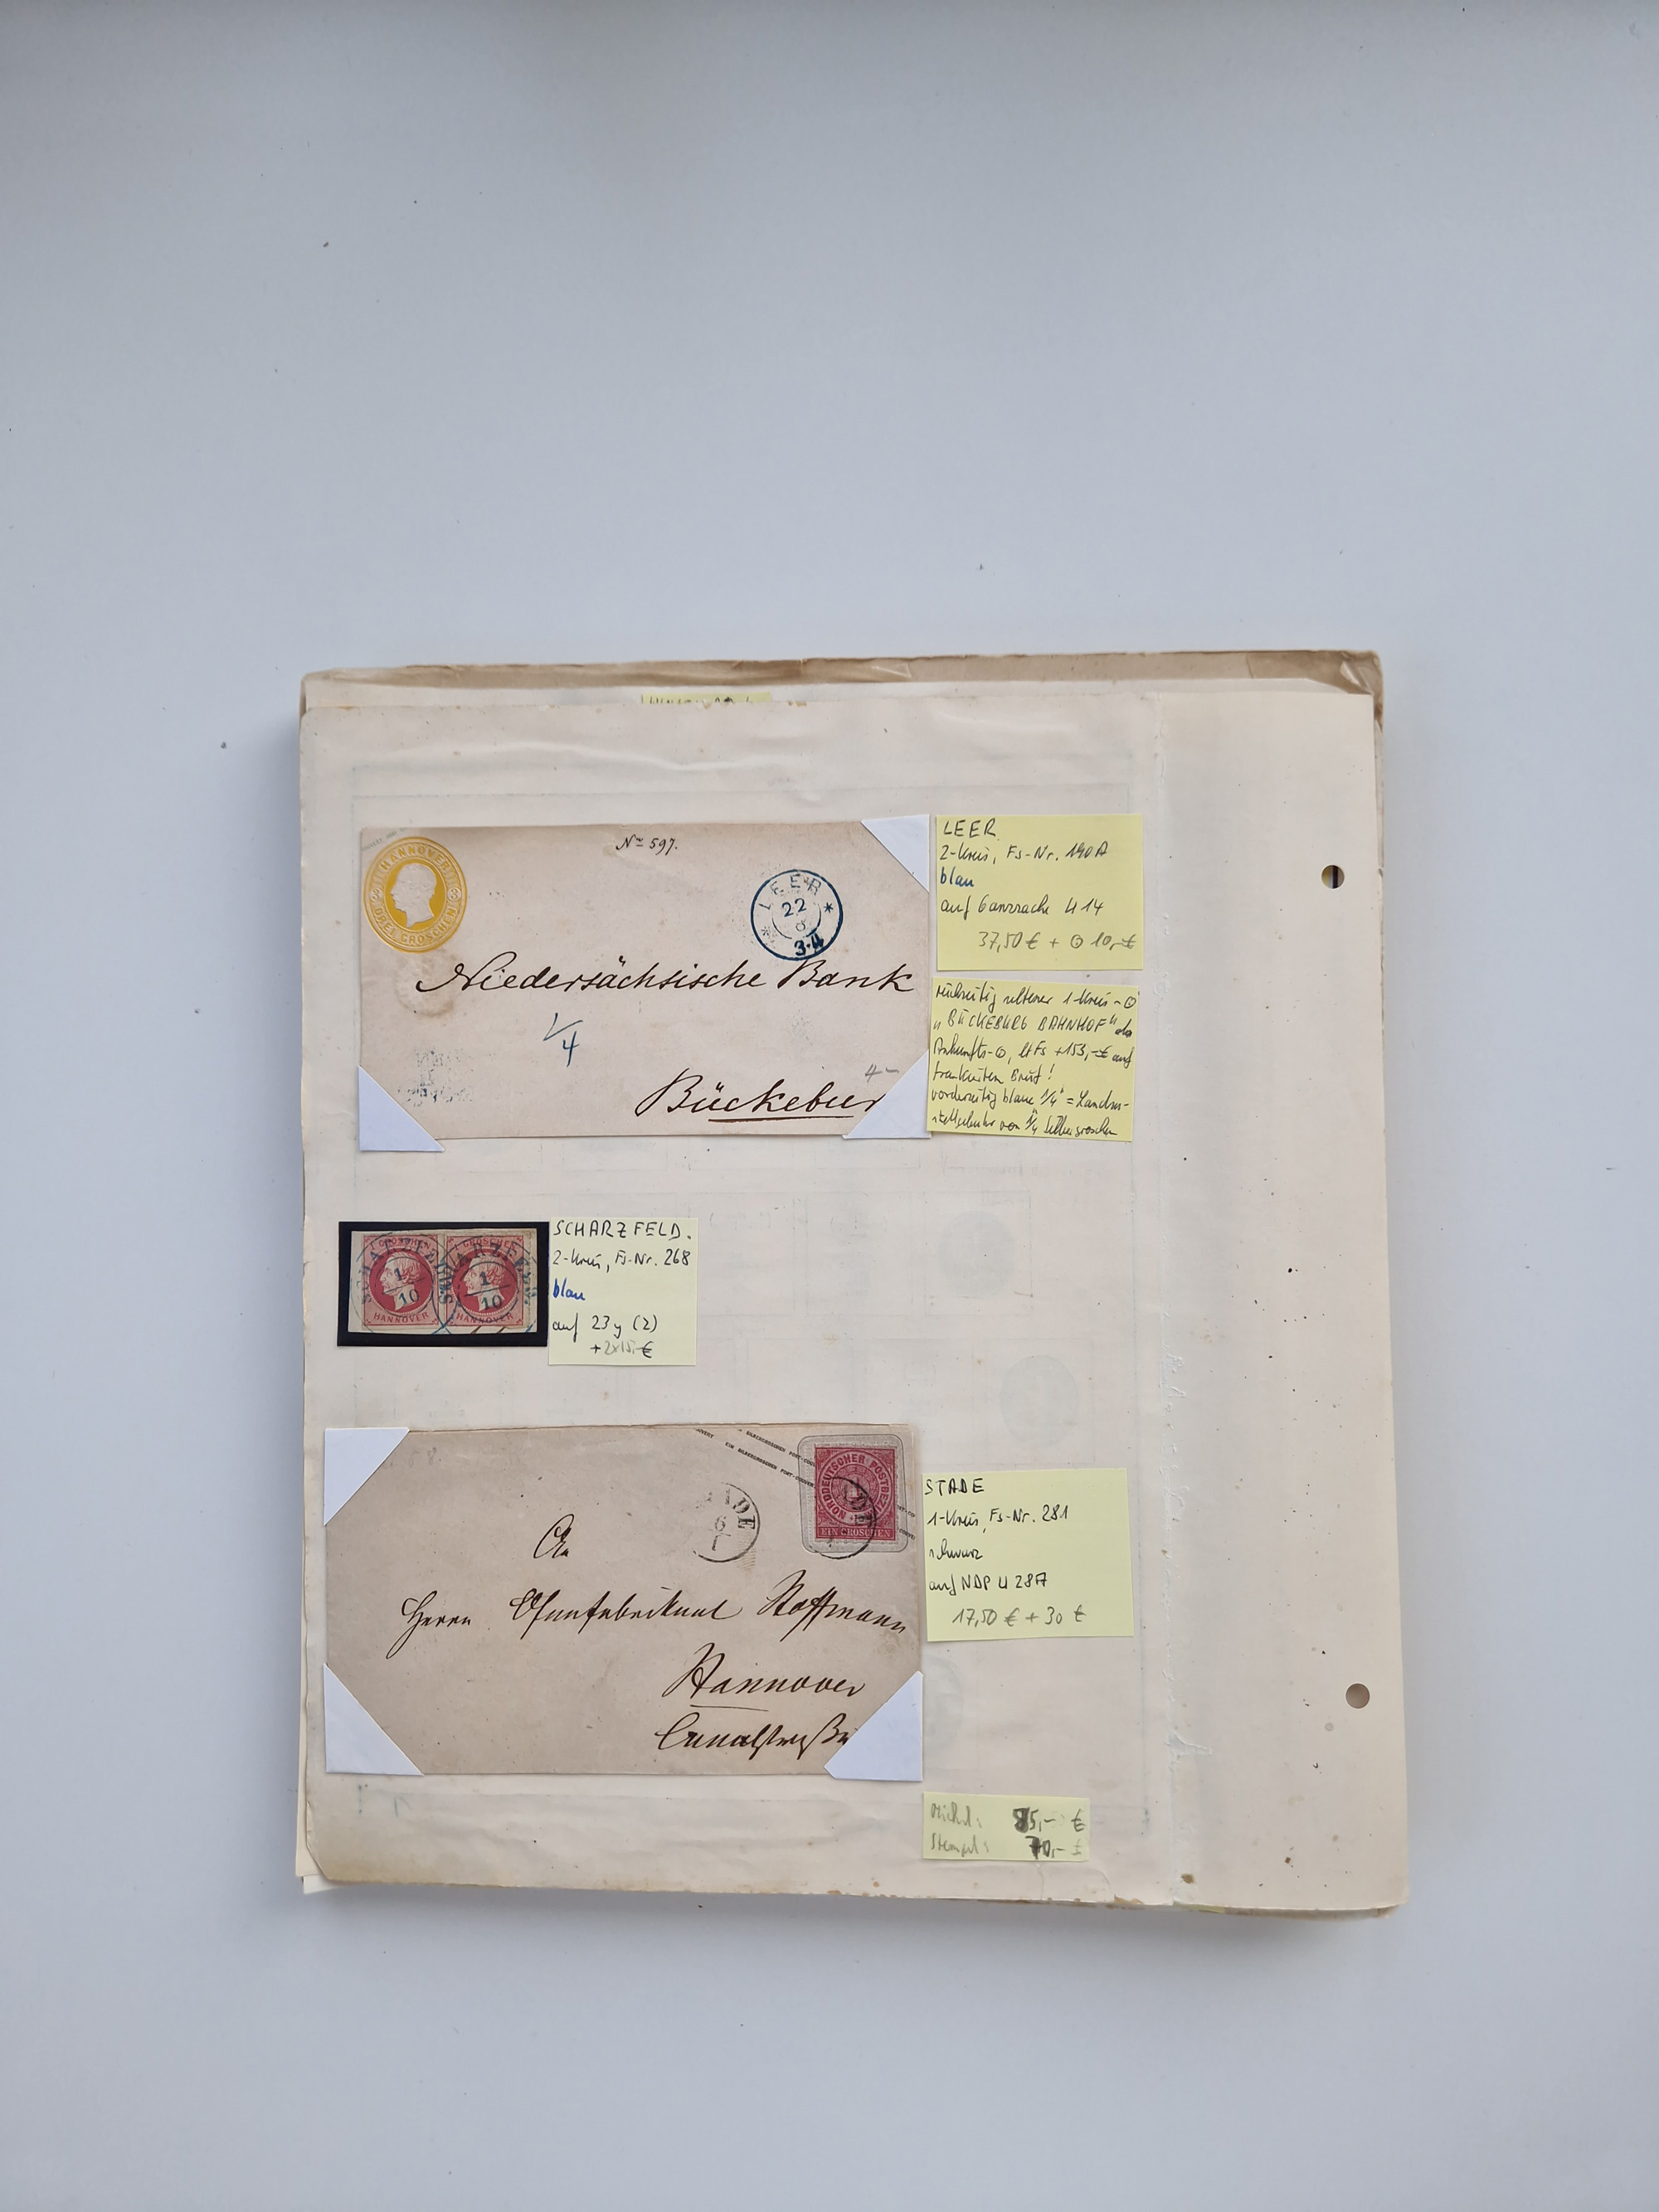 No 597.
HANNOVER
DREI GROSCHEN
LEER
22
8
3-4
Niedersächsische Bank
1/4
4-
Bückebur
LEER
2-Kreis, Fs-Nr. 190A
blau
auf Ganzsache U 14
37,50 € + 10,-€
rückseitig seltener 1-Kreis-
"BÜCKEBURG BAHNHOF" als
Ankunfts- , lt Fs +153,-€ auf
frankiertem Brief!
vorderseitig blaue "1/4" = Landzu-
stellgebühr von 1/4 Silbergroschen
1 GROSCHEN
1 GROSCHEN
1
10
1
10
HANNOVER
HANNOVER
SCHARZFELD.
2-Kreis, Fs-Nr. 268
blau
auf 23y (2)
+2x15,-€
EIN SILBERGROSCHEN POST-COUVERT
NORDDEUTSCHER POSTBEZIRK
EIN GROSCHEN
ADE
6
1
An
Herrn Ofenfabrikant Hoffmann
Hannover
Canalstraße
STADE
1-Kreis, Fs-Nr. 281
schwarz
auf NDP U 28A
17,50 € + 30 €
Michel: 85,- €
Stempel: 70,- €